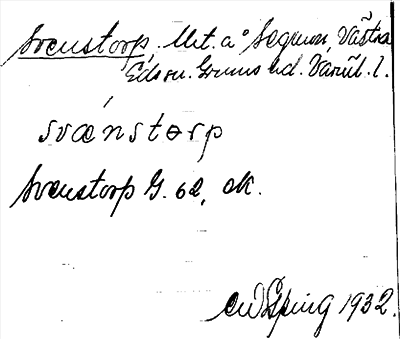 Svenstorp. Utt. a° Segmon, Västra
Edsv. Grums hd. Värml. l.
svǽnstorp
Svenstorp G. 62, ek.
1932.